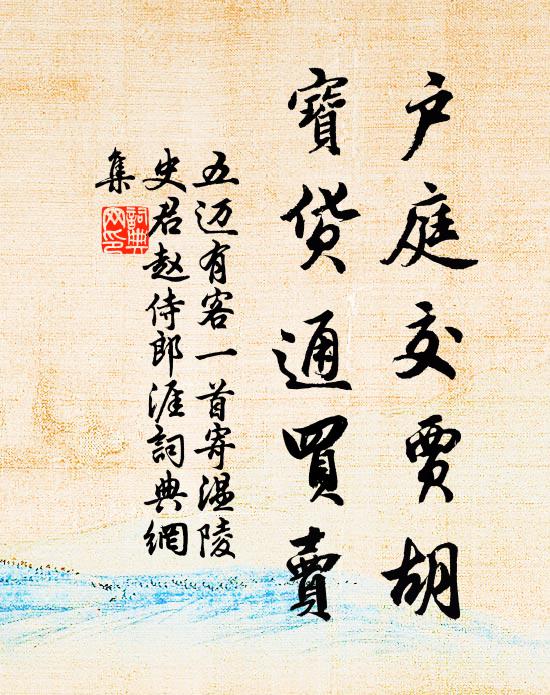 户庭交賈胡
寶货通買賣
五迈有客一首寄温陵
史君赵侍郎涯詞典網
集
詞典网印